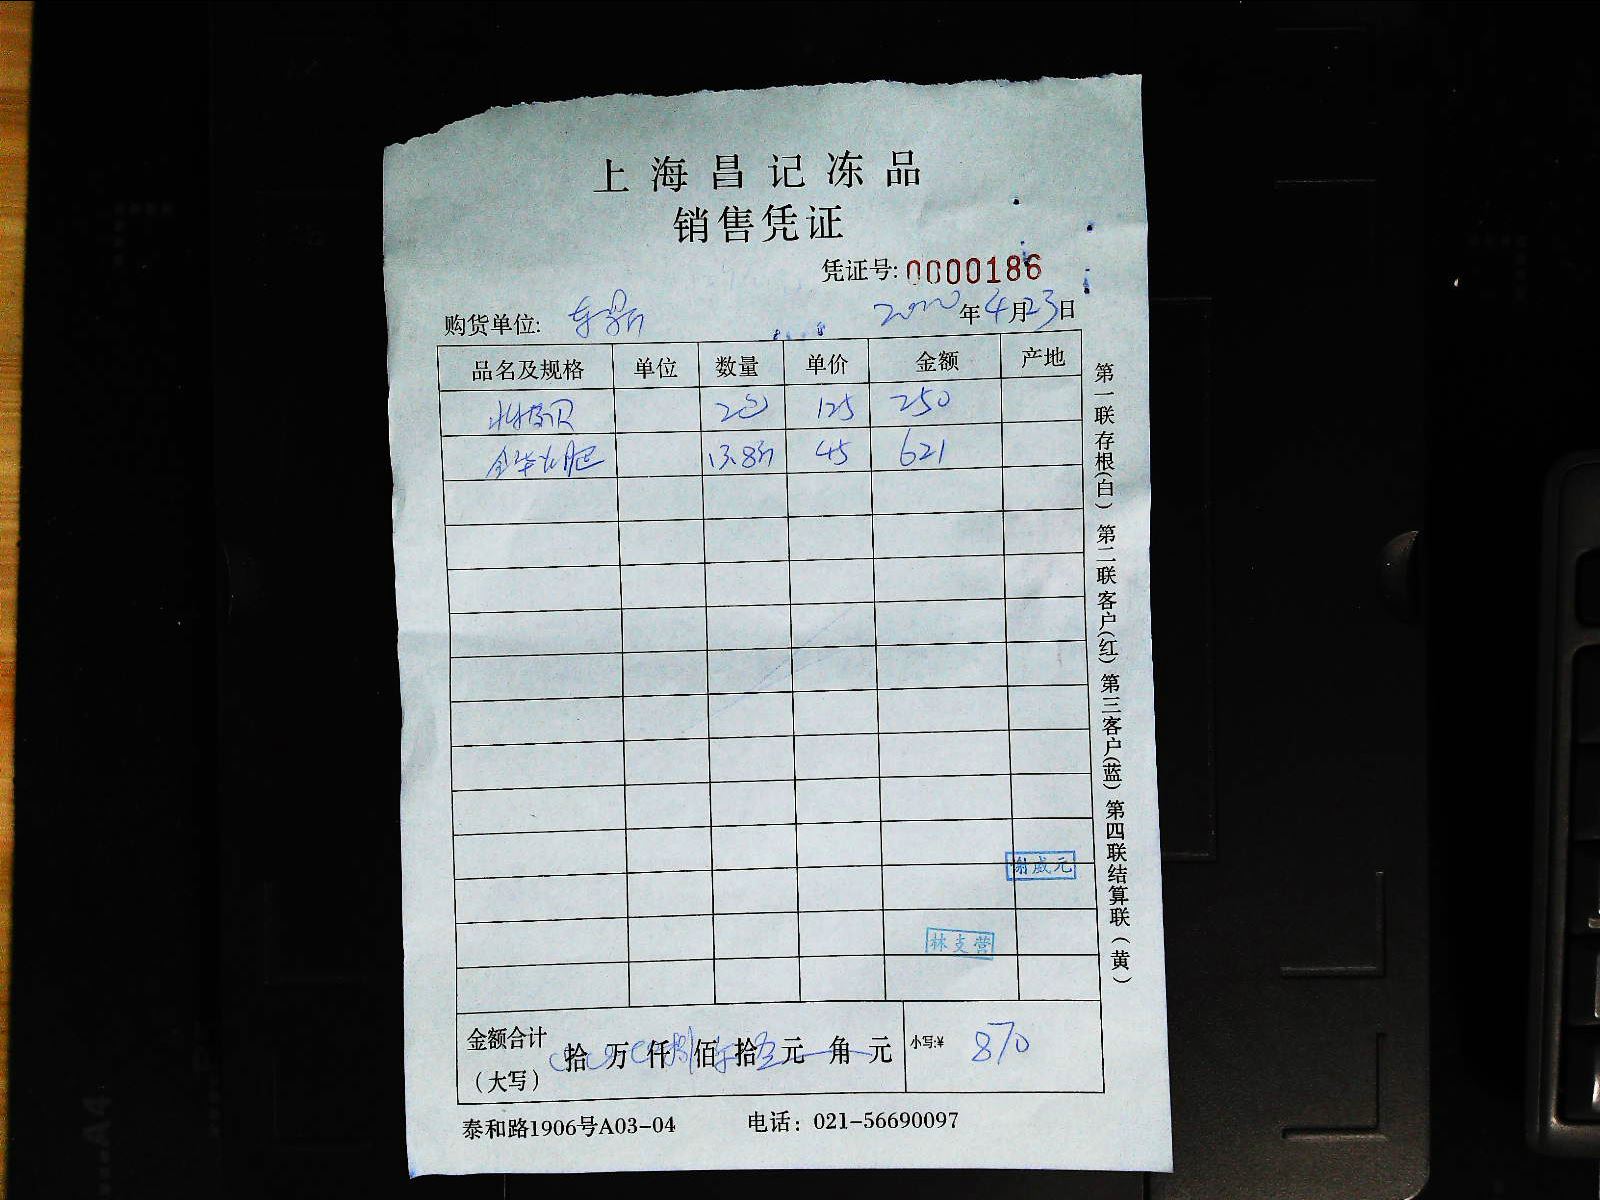 上海昌记冻品
销售凭证
凭证号: 0000186
购货单位: 2020年4月23日
品名及规格 单位 数量 单价 金额 产地
2包 125 250
金华火腿 13.8斤 45 621
谢威元
林支营
金额合计(大写) 拾 万 仟 捌 佰 拾 元 角 元 小写:¥ 870
泰和路1906号A03-04 电话: 021-56690097
第一联存根(白) 第二联客户(红) 第三客户(蓝) 第四联结算联(黄)